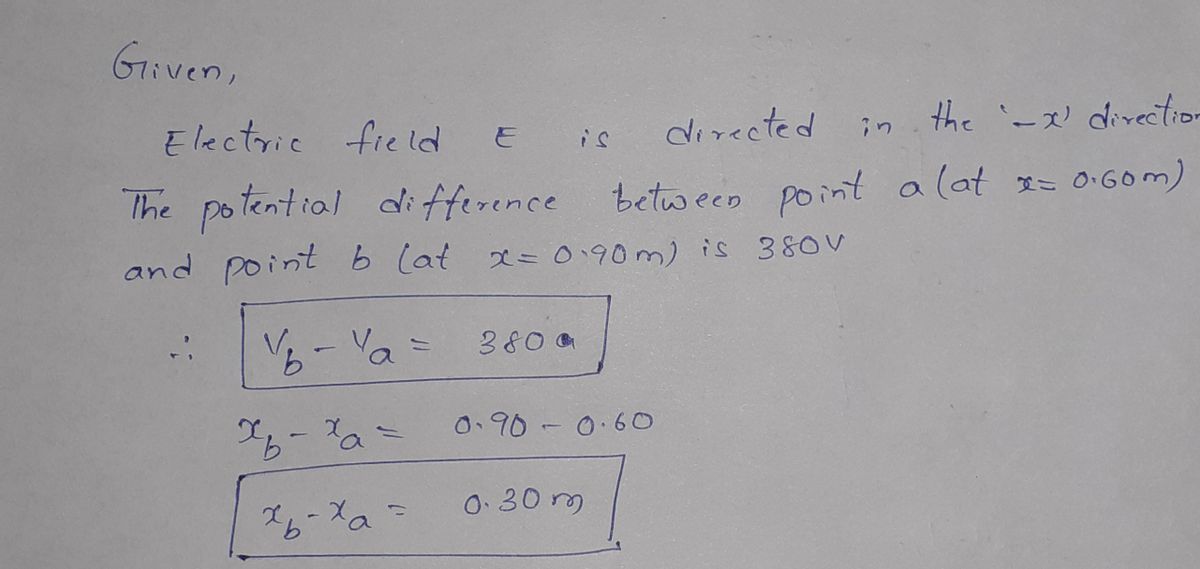 Given,
Electric field E is directed in the '-x' direction
The potential difference between point a (at x= 0.60m)
and point b (at x= 0.90m) is 380V
∴ V_b - V_a = 380
x_b - x_a = 0.90 - 0.60
x_b - x_a = 0.30 m